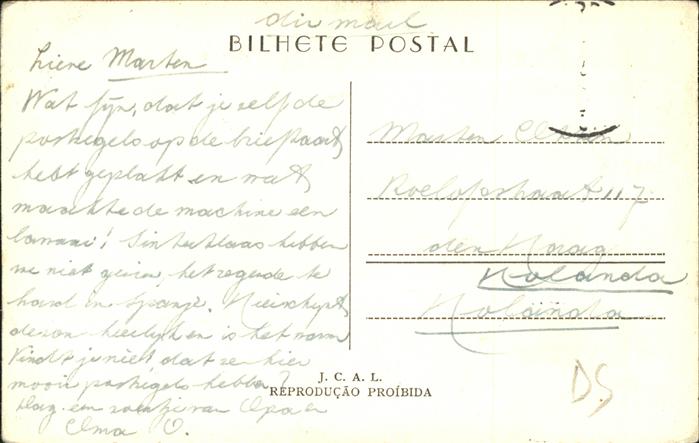 air mail
BILHETE POSTAL
Lieve Marten
Wat fijn, dat je zelf de
postzegels op de briefkaart
hebt geplakt en wat
maakte de machine een
lawaai! Sinterklaas hebben
we niet gezien, het regende te
hard in Spanje. Hier schijnt
de zon heerlijk en is het warm
Vindt je niet, dat ze hier
mooie postzegels hebben?
Dag een zoentje van Opa en
Oma O.
Marten
Roelofstraat 117
den Haag
Holanda
Holanda
J. C. A. L.
REPRODUÇÃO PROÍBIDA
DS